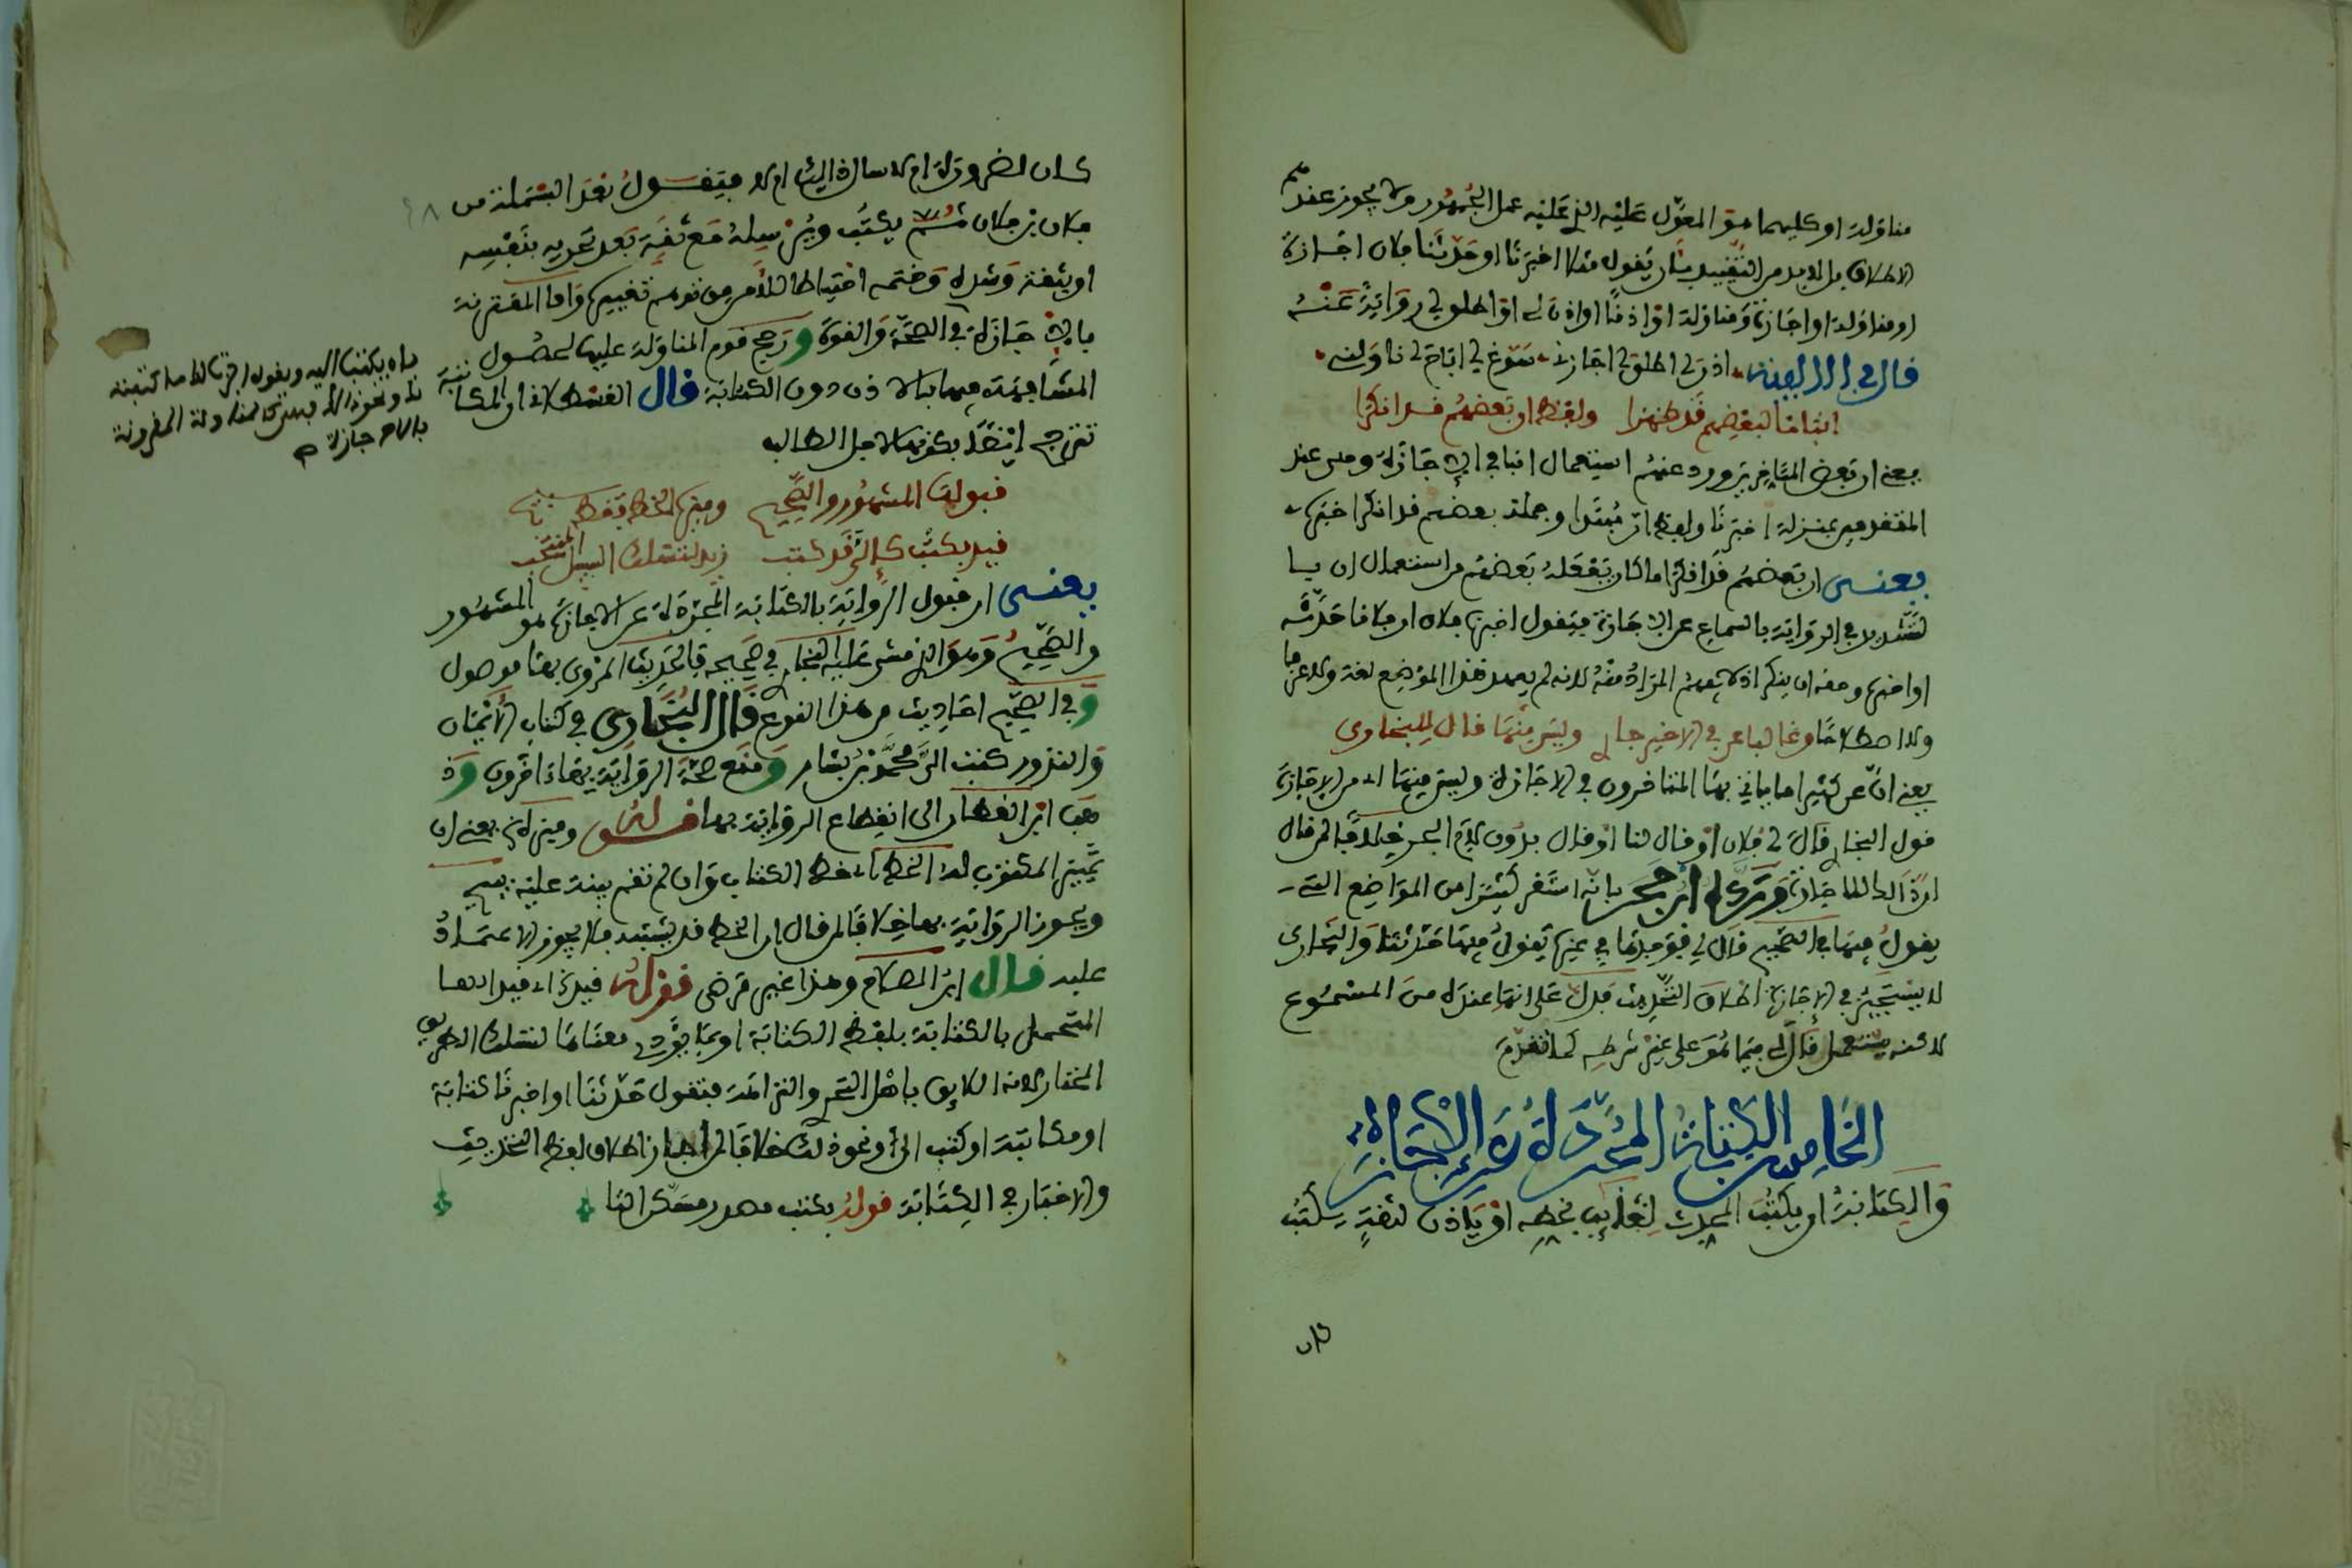 مناولة او كليهما هو المعول عليه الذي عليه عمل الجمهور ولا يجوز عندهم
الاطلاق بل لابد من التقييد بان يقول مثلا اخبرنا او حدثنا فلان اجازة
او مناولة او اجازة ومناولة او اذنا او اذن لي او اطلق لي روايته عنه
قال في الالفية اذن لي اطلق لي اجازني سوغ لي اباح لي ناولني
انبانا لبعضهم قد ظهرا ولفظ ان بعضهم قد انكرا
يعني ان بعض المتاخرين ورد عنهم استعمال انبا في الاجازة وهي عند
المتقدمين بمنزلة اخبرنا ولفظ ان مبتدا وجملة بعضهم قد انكرا خبره
يعنى ان بعضهم قد انكر ما كان يفعله بعضهم من استعمال ان با
لتشديد في الرواية بالسماع عن الاجازة فيقول اخبرنا فلان ان فلانا حدثه
او اخبره وحقه ان ينكر اذ لا يفهم المراد منه لانه لم يعهد هذا الموضع لغة ولا عرفا
ولا اصطلاحا وغالبا عن في الاخير جاء وليس منها قال لي للبخاري
يعني ان عن كثيرا ما ياتي بها المتاخرون في الاجازة وليس منها اي من الاجازة
قول البخاري قال لي فلان او قال لنا او قال بدون لام الجر خلافا لمن قال
ورده ابن حجر بانه استقر كثيرا من المواضع التي
يقول فيها في الصحيح قال لي فوجدها في غيره يقول فيها حدثنا والبخاري
لا يستجيز في الاجازة اطلاق التحديث فدل على انها عنده من المسموع
لاكنه يستعمل قال لي فيما هو على غير شرطه كما تقدم
الخامس الكتابة المجردة عن الاجازة
والكتابة ان يكتب المحدث لغايب بخطه او ياذن لثقة يكتب
كان لضرورة ام لا سال ذا اليه ام لا فيقول بعد البسملة من
فلان بن فلان ثم يكتب ويرسله مع ثقة بعد تحريره بنفسه
او بثقة وشده وختمه احتياطا للامر من توهم تغييره واما المقترنة
بالاجازة في الصحة والقوة ورجح قوم المناولة عليها لحصول
المشافهة فيها بالاذن دون الكتابة قال القسطلاني او المكاتبة
تترجح ايضا بكونها لاجل الطالب
قبولها المشهور والصحيح
قيل يكتب كالى قد كتب
يعنى ان قبول الرواية بالكتابة المجردة عن الاجازة هو المشهور
والصحيح وهو الذي مشى عليه البخاري في صحيحه فالحديث المروي بها موصول
وفي الصحيح احاديث من هذا النوع قال البخاري في كتاب الايمان
والنذور كتب الى محمد بن بشار ومنع صحة الرواية بها اخرون وذ
هب ابن القطان الى انقطاع الرواية بها قوله وميزه يعني ان
تمييز المكتوب له الخط اي خط الكتاب وان لم تقم بينة عليه
ويجوز الرواية بها خلافا لمن قال ان الخط قد يشتبه فلا يجوز الاعتماد
عليه قال ابن الصلاح وهذا غير مرضي قوله قيد اي قيد ادها
المتحمل بالكتابة بلفظ الكتابة او بما يؤدي معناها لتسلك الطريق
المختار لانه اللايق باهل التحري والنزاهة فتقول حدثنا او اخبرنا كتابة
او مكاتبة او كتب الى او نحو ذلك خلافا لمن اجاز اطلاق لفظ التحديث
والاخبار في الكتابة قوله بكتب مصدر مسكن التا
بان يكتب اليه ويقول اجزت لك ما كتبته
لك ونحو ذلك كالمناولة المقرونة
بالاجازة